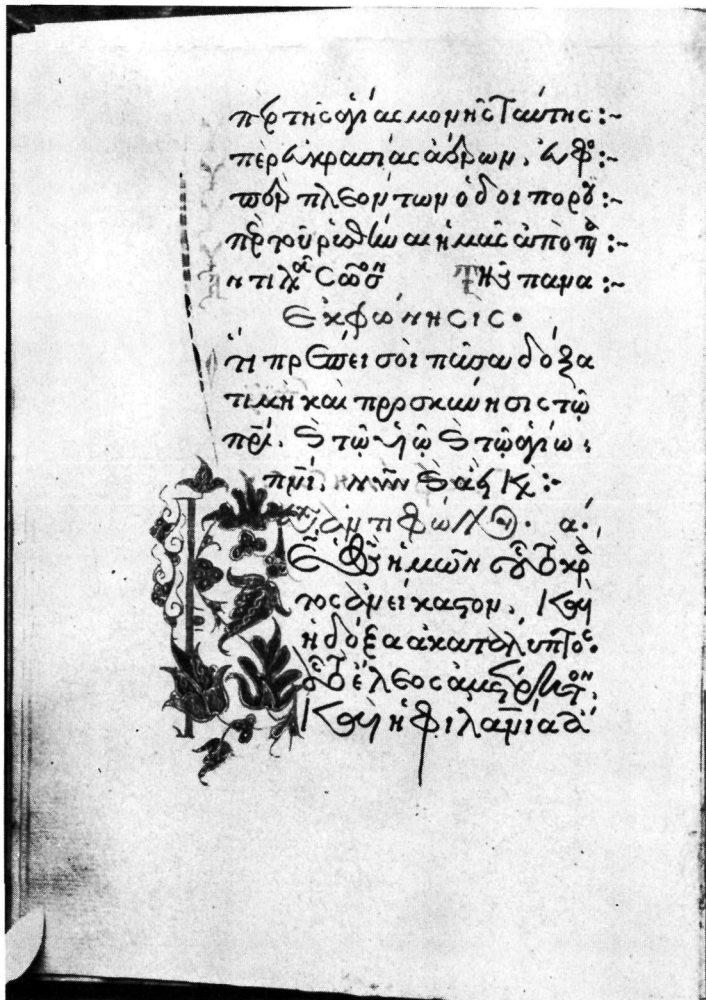 πὲρ τῆς ἁγίας μονῆς ταύτης :~
πὲρ εὐκρασίας ἀέρων, εὐφο :~
πὲρ πλεόντων ὁδοιπορου :~
πὲρ τοῦ ρυσθῆναι ἡμᾶς ἀπὸ πα :~
ντιλα σῶσον Τῆς πανα :~
Ἐκφώνησις·
τι πρέπει σοὶ πᾶσα δόξα
τιμὴ καὶ προσκύνησις τῷ
πρι. καὶ τῷ υἱῷ καὶ τῷ ἁγίω.
πνι. νῦν καὶ ἀεὶ κ :~
ἀντιφώνου· α·
ὁ θς ἡμῶν οὗ τὸ κρά
τος ἀνείκαστον, καὶ
ἡ δόξα ἀκατάληπτος.
οὗ τὸ ἔλεος ἀμέτρητον.
καὶ ἡ φιλανια ἄ